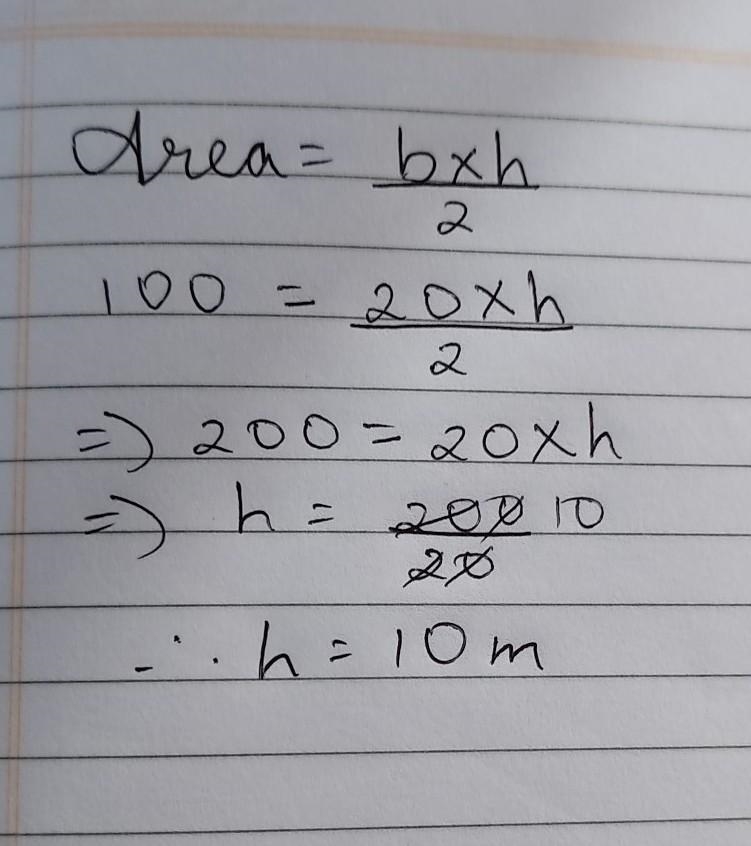 Area = b×h/2
100 = 20×h/2
⇒ 200 = 20×h
⇒ h = 200/20 10
∴ h = 10 m